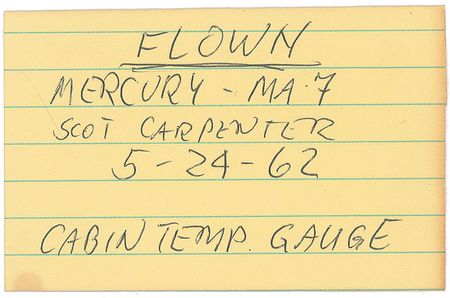 FLOWN
MERCURY - MA-7
SCOT CARPENTER
5-24-62
CABIN TEMP. GAUGE